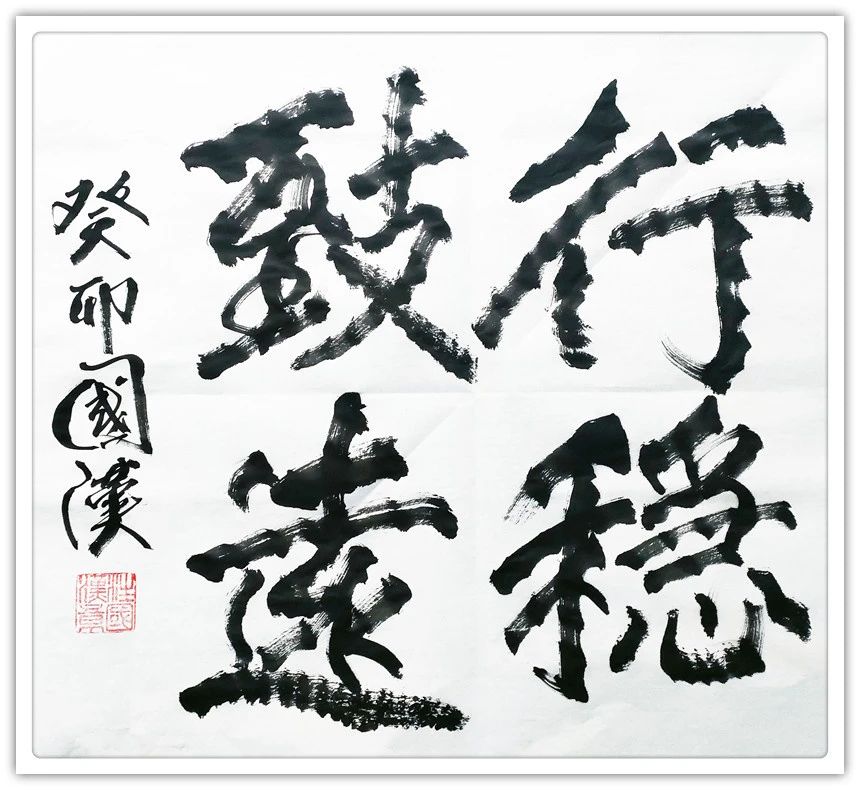 行稳
致遠
癸卯國漢